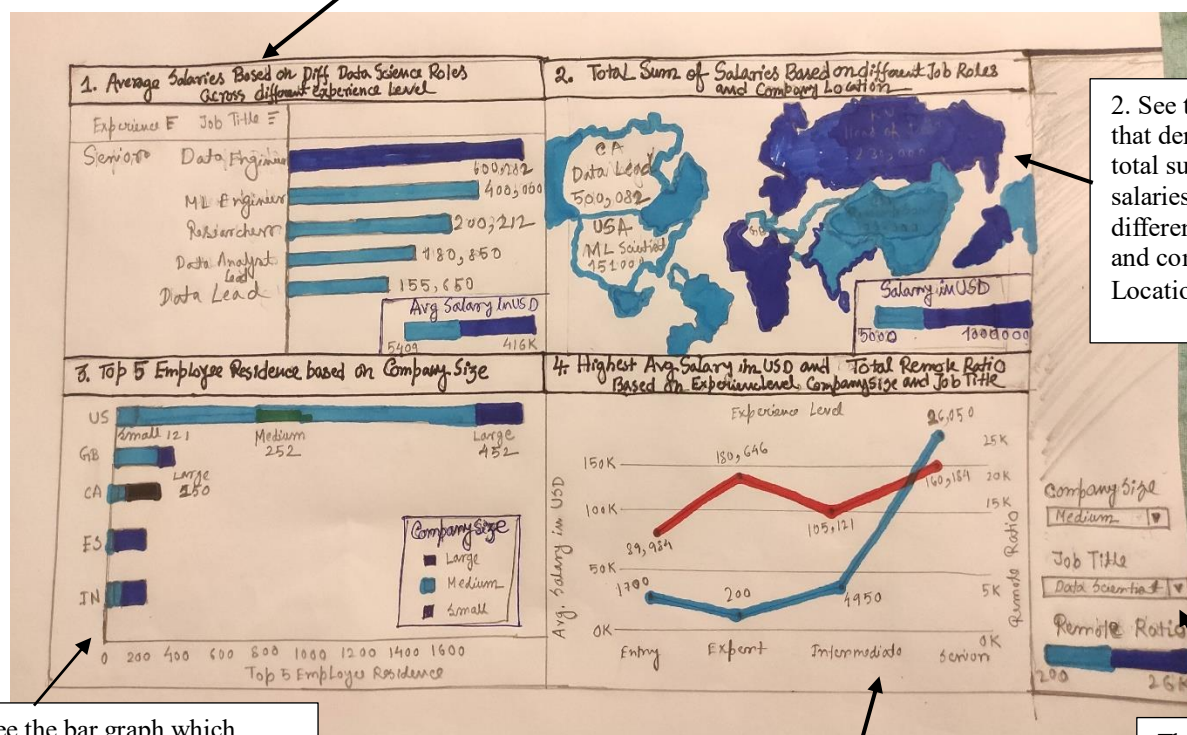 1. Average Salaries Based on Diff Data Science Roles
Across different Experience Level
Experience Job Title
Senior Data Engineer
600,282
ML Engineer 400,000
Researcher 200,212
Data Analyst 180,850
Lead
Data Lead 155,650
Avg Salary In USD
5409 416K
2. Total Sum of Salaries Based on different Job Roles
and Company Location
CA
Data Lead
500,082
USA
ML Scientist
15100
GB
231,000
Salary in USD
5000 1000000
2. See t
that der
total su
salaries
differen
and cor
Locatio
3. Top 5 Employee Residence based on Company Size
US
Small 121 Medium Large
252 452
GB
Large
CA 250
ES
IN
Company Size
Large
Medium
Small
0 200 400 600 800 1000 1200 1400 1600
Top 5 Employee Residence
4. Highest Avg. Salary in USD and Total Remote Ratio
Based on Experience level, Company Size and Job Title
Experience Level
26,050
25K
180,646
150K
160,184 20K
15K
100K
105,121
39,984
50K
1700 200 4950 5K
0K 0K
Entry Expert Intermediate Senior
Avg. Salary in USD
Remote Ratio
Company Size
Medium
Job Title
Data Scientist
Remote Ratio
200 26K
ee the bar graph which
Th